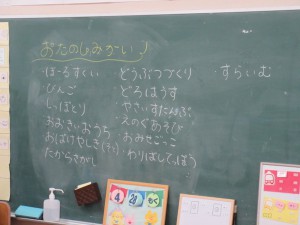 おたのしみかい♪
ぼーるすくい
びんご
しっぽとり
おおきいおうち
おばけやしき
たからさがし
どうぶつづくり
どろはうす
やさいすたんぷ
えのぐあそび
おみせごっこ
わりばしてっぽう
すらいむ
4
26
もく